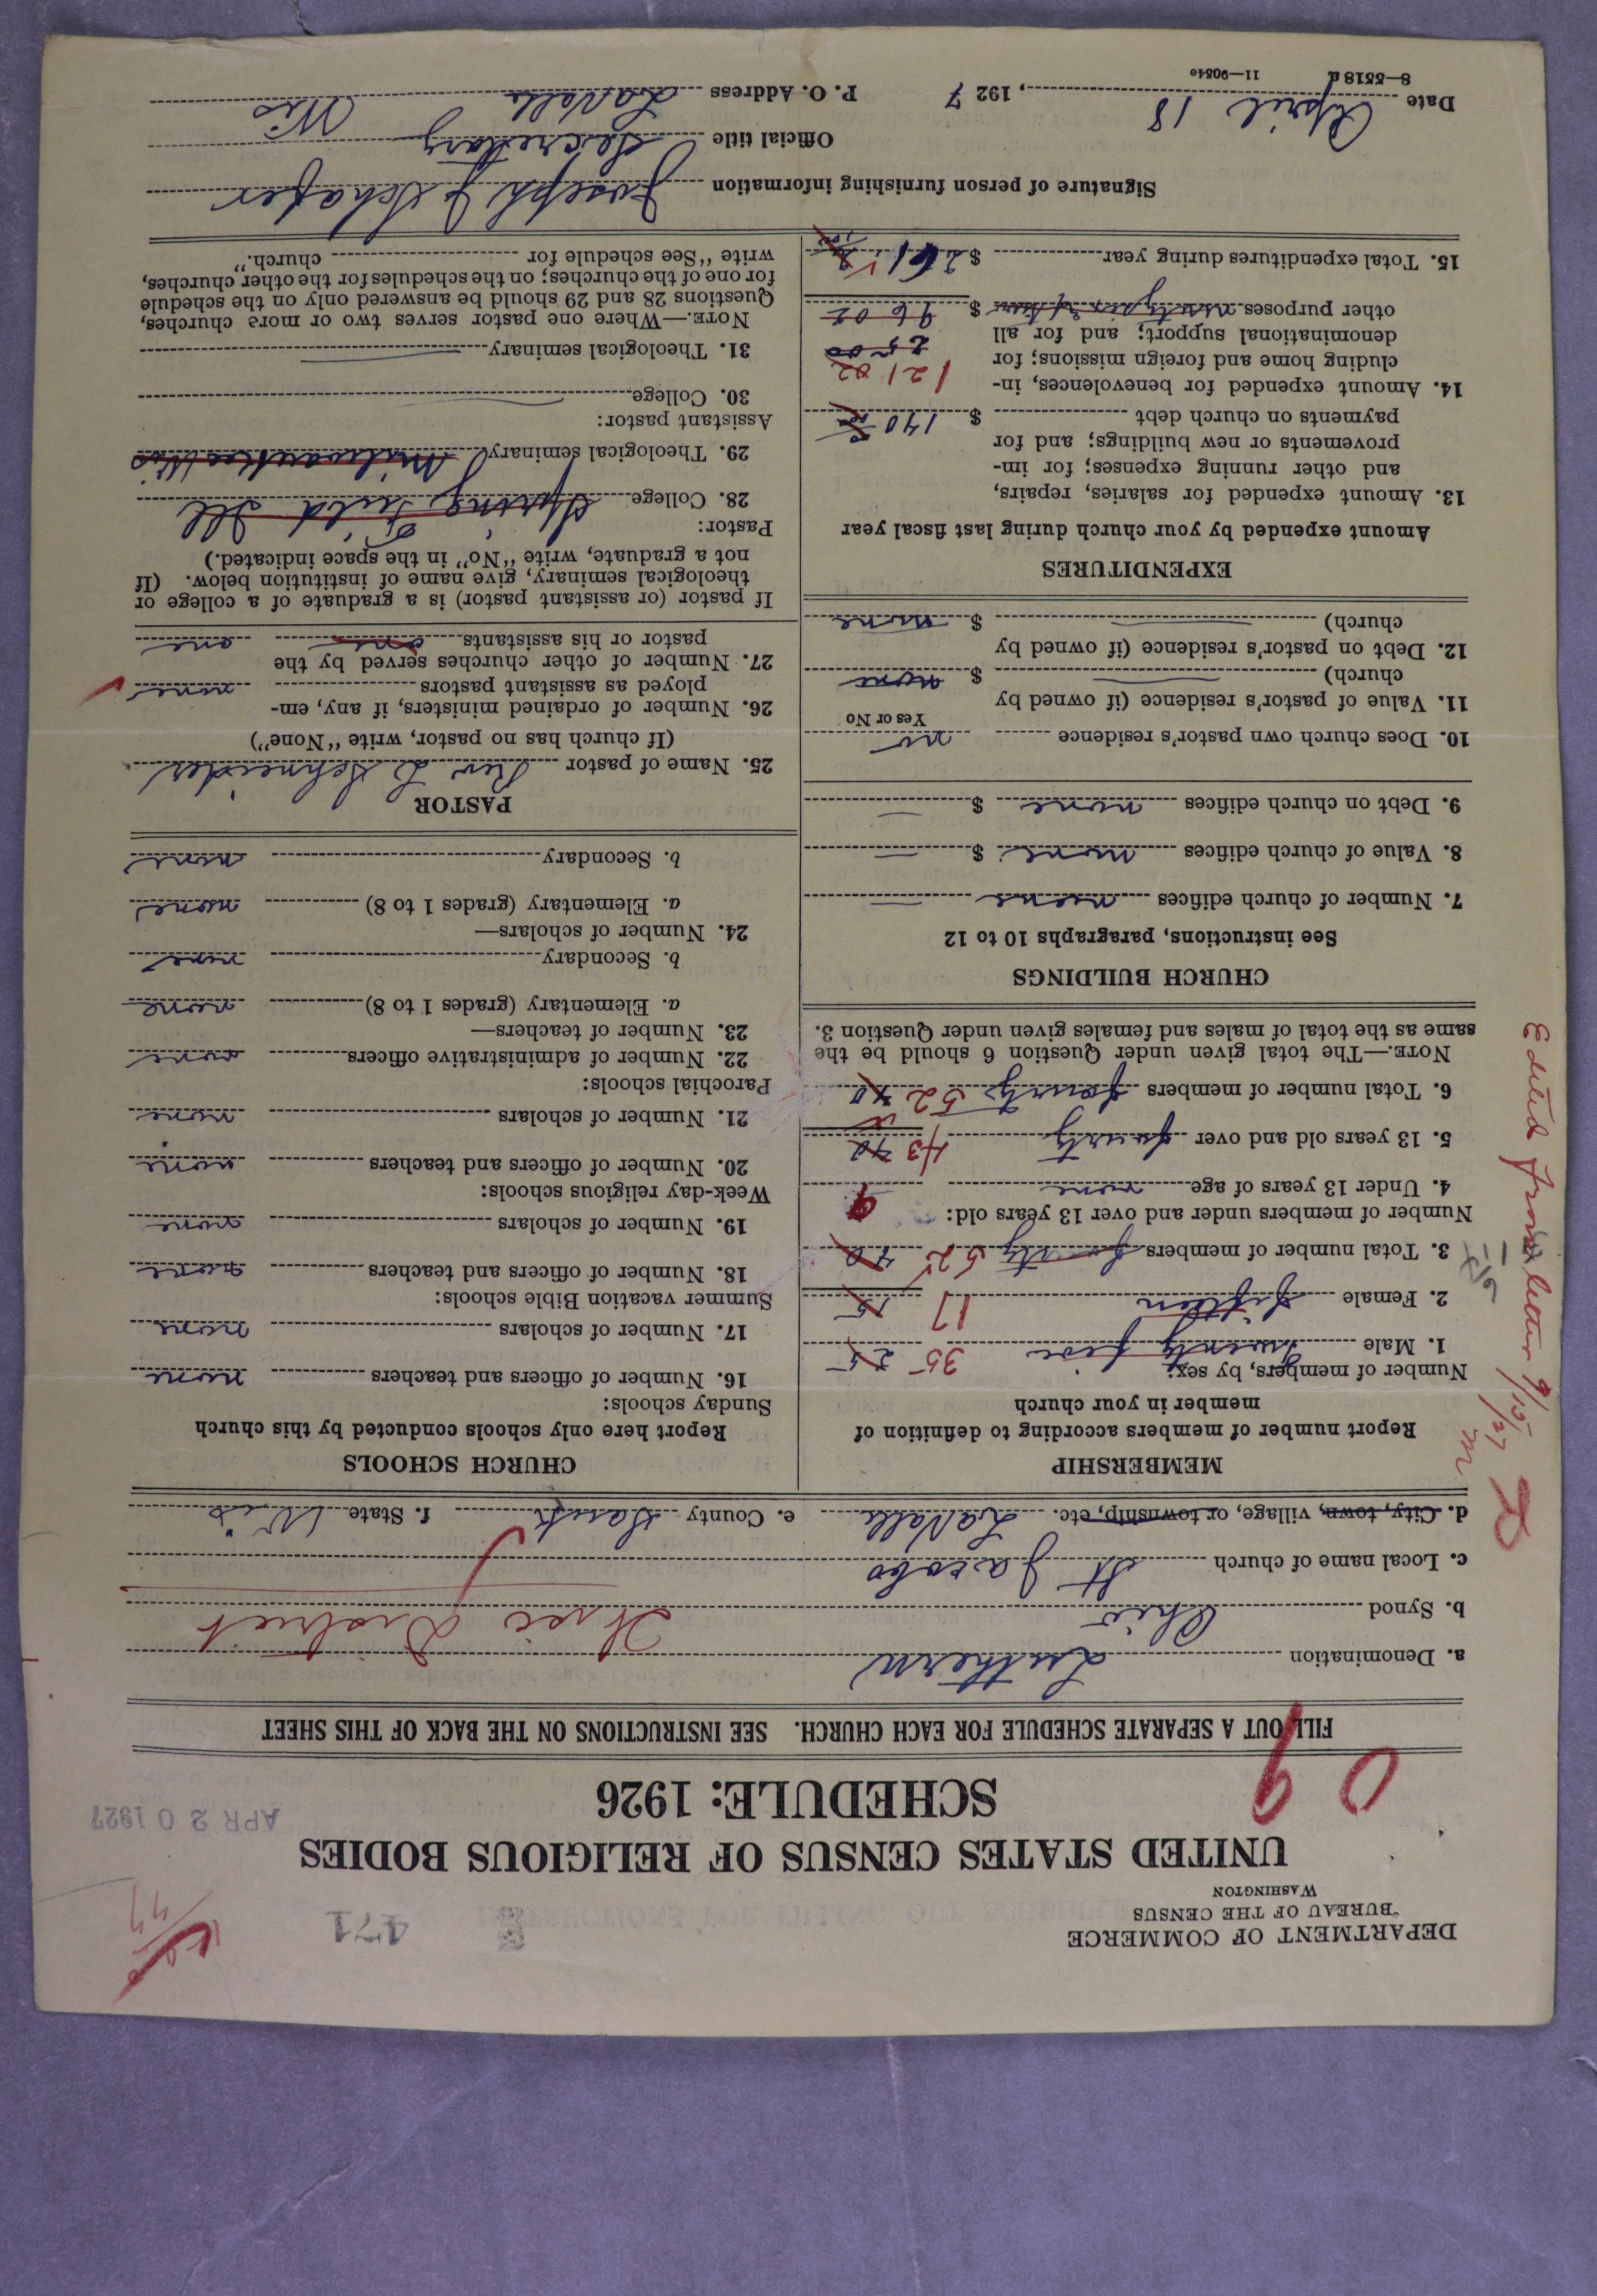 DEPARTMENT OF COMMERCE
BUREAU OF THE CENSUS
WASHINGTON
471
UNITED STATES CENSUS OF RELIGIOUS BODIES
SCHEDULE: 1926
APR 20 1927
FILL OUT A SEPARATE SCHEDULE FOR EACH CHURCH. SEE INSTRUCTIONS ON THE BACK OF THIS SHEET
a. Denomination Lutheran
b. Synod Ohio District
c. Local name of church St Jacobo
d. City, town, village, or township, etc. LaValle e. County Sauk f. State Wis
MEMBERSHIP
Report number of members according to definition of
member in your church
Number of members, by sex:
1. Male twenty five 35 25
2. Female fifteen 17 15
3. Total number of members forty 52 40
Number of members under and over 13 years old:
4. Under 13 years of age none 9
5. 13 years old and over forty 43 40
6. Total number of members forty 52 40
NOTE.—The total given under Question 6 should be the
same as the total of males and females given under Question 3.
CHURCH BUILDINGS
See instructions, paragraphs 10 to 12
7. Number of church edifices none
8. Value of church edifices none $
9. Debt on church edifices none $
10. Does church own pastor's residence no
Yes or No
11. Value of pastor's residence (if owned by
church) $ none
12. Debt on pastor's residence (if owned by
church) $ none
EXPENDITURES
Amount expended by your church during last fiscal year
13. Amount expended for salaries, repairs,
and other running expenses; for im-
provements or new buildings; and for
payments on church debt $ 140
14. Amount expended for benevolences, in-
cluding home and foreign missions; for 121 02
denominational support; and for all 25 00
other purposes $ 96 02
15. Total expenditures during year $ 261
CHURCH SCHOOLS
Report here only schools conducted by this church
Sunday schools:
16. Number of officers and teachers none
17. Number of scholars none
Summer vacation Bible schools:
18. Number of officers and teachers none
19. Number of scholars none
Week-day religious schools:
20. Number of officers and teachers none
21. Number of scholars none
Parochial schools:
22. Number of administrative officers none
23. Number of teachers—
a. Elementary (grades 1 to 8) none
b. Secondary none
24. Number of scholars—
a. Elementary (grades 1 to 8) none
b. Secondary none
PASTOR
25. Name of pastor Rev L Schneider
(If church has no pastor, write "None")
26. Number of ordained ministers, if any, em-
ployed as assistant pastors none
27. Number of other churches served by the
pastor or his assistants one one
If pastor (or assistant pastor) is a graduate of a college or
theological seminary, give name of institution below. (If
not a graduate, write "No" in the space indicated.)
Pastor:
28. College Spring Field Ill
29. Theological seminary Milwaukee Wis
Assistant pastor:
30. College
31. Theological seminary
NOTE.—Where one pastor serves two or more churches,
Questions 28 and 29 should be answered only on the schedule
for one of the churches; on the schedules for the other churches,
write "See schedule for church."
Signature of person furnishing information Joseph J Schafer
Official title Secretary
Date April 18, 1927 P. O. Address LaValle Wis
8—5518a 11—9054c
Edited from letter 9/15/27